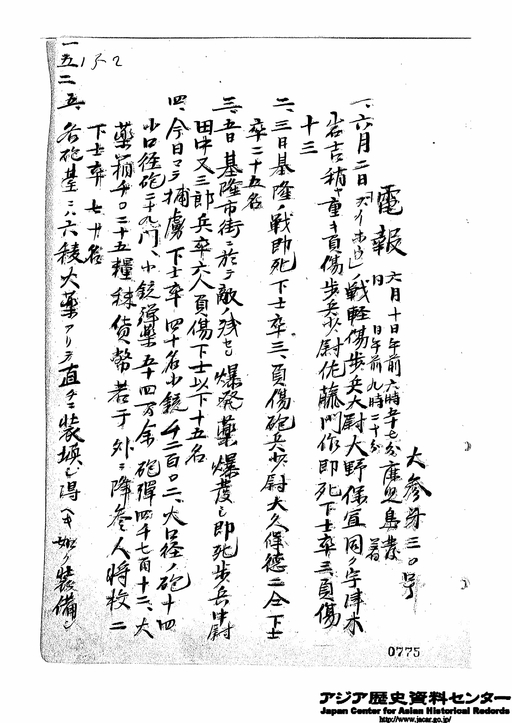 大参身三〇号
電報 六月十日午前六時五十七分鹿児島発
日午前九時二十分着
一、六月二日ズイホウノ戦軽傷歩兵大尉大野保宜同ク宇津木
岩吉稍ヤ重キ負傷歩兵少尉佐藤門作即死下士卒三負傷
十三
二、三日基隆ノ戦即死下士卒三、負傷砲兵少尉大久保徳二仝下士
卒二十五名
三、五日基隆市街ニ於テ敵ノ残セシ爆発薬爆発シ即死歩兵中尉
田中又三郎兵卒六人負傷下士以下十五名
四、今日マテ捕虜下士卒四十名小銃千三百〇二、大口径ノ砲十四
小口径砲三十九門、小銃弾薬五十四万余砲弾四千七百十三、火
薬箱千〇二十五糧秣貨幣若干外ニ降参人将校二
下士卒七十名
五、各砲基ニハ六稜火薬アリテ直チニ装填シ得ヘキ如ク装備シ
一五二
152
0775
アジア歴史資料センター
Japan Center for Asian Historical Records
http://www.jacar.go.jp/